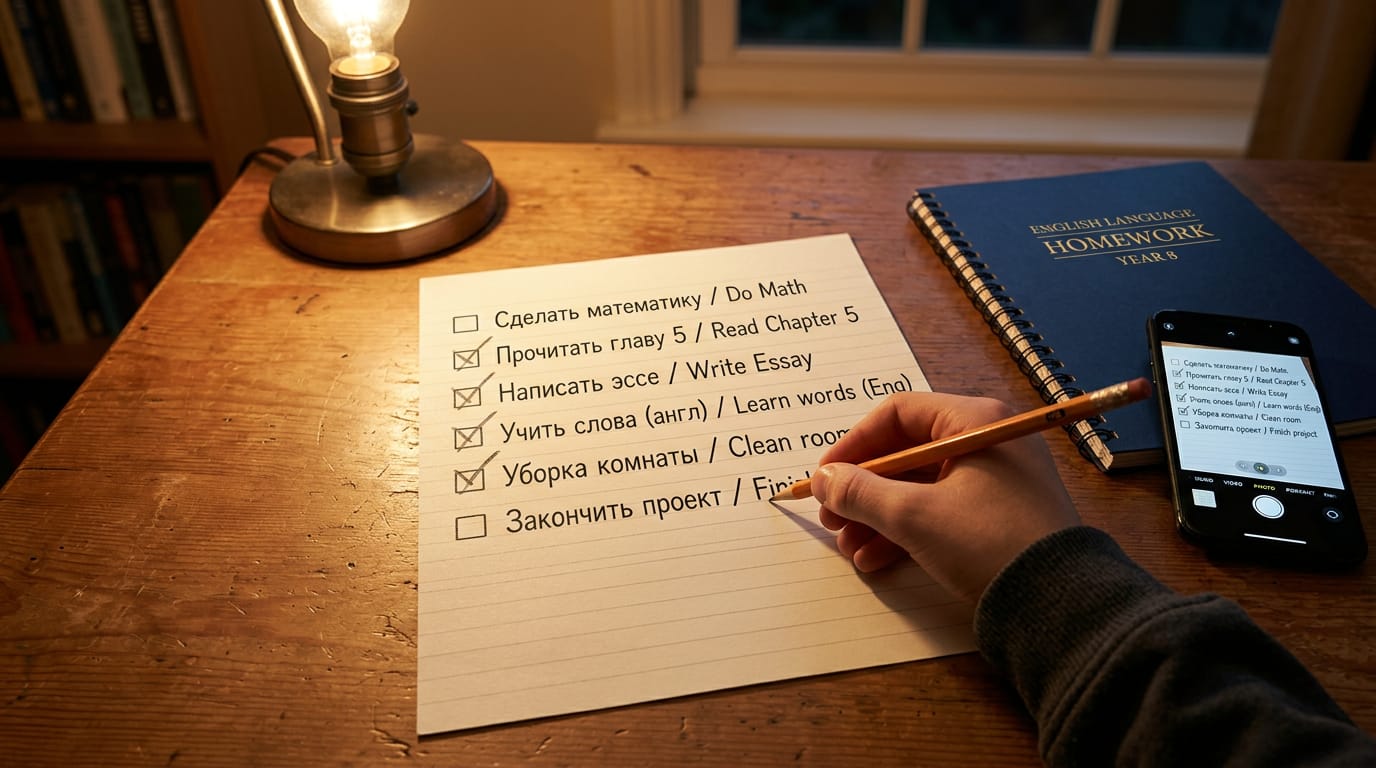 Сделать математику / Do Math
Прочитать главу 5 / Read Chapter 5
Написать эссе / Write Essay
Учить слова (англ) / Learn words (Eng)
Уборка комнаты / Clean room
Закончить проект /
ENGLISH LANGUAGE
HOMEWORK
YEAR 8
Сделать математику / Do Math
Прочитать главу 5 / Read Chapter 5
эссе / Write Essay
/ Learn words (Eng)
Уборка комнаты / Clean room
проект / project
VIDEO
PHOTO